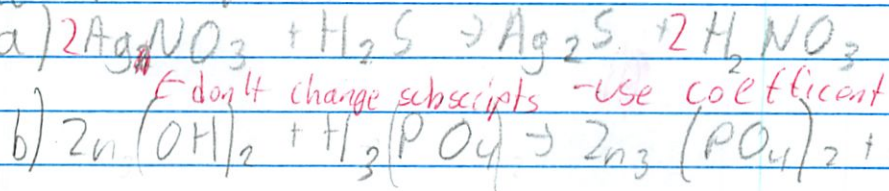 a) 2AgNO₃ + H₂S → Ag₂S + 2H₂NO₃
← don't change subscripts - use coefficient
b) Zn(OH)₂ + H₃(PO₄ → Zn₃(PO₄)₂ +